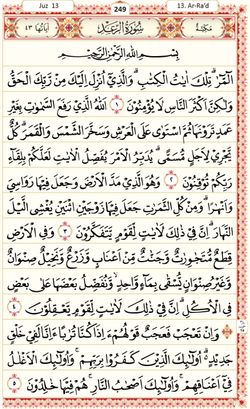 Juz 13
249
13. Ar-Ra'd
مَكِّيَّةٌ سُوْرَةُ الرَّعْدِ اٰيَاتُهَا ٤٣
بِسْمِ اللّٰهِ الرَّحْمٰنِ الرَّحِيْمِ
الۤمّۤرٰ ۗ تِلْكَ اٰيٰتُ الْكِتٰبِ ۗ وَالَّذِيْٓ اُنْزِلَ اِلَيْكَ مِنْ رَّبِّكَ الْحَقُّ
وَلٰكِنَّ اَكْثَرَ النَّاسِ لَا يُؤْمِنُوْنَ ١ اَللّٰهُ الَّذِيْ رَفَعَ السَّمٰوٰتِ بِغَيْرِ
عَمَدٍ تَرَوْنَهَا ثُمَّ اسْتَوٰى عَلَى الْعَرْشِ وَسَخَّرَ الشَّمْسَ وَالْقَمَرَ ۗ كُلٌّ
يَّجْرِيْ لِاَجَلٍ مُّسَمًّى ۗ يُدَبِّرُ الْاَمْرَ يُفَصِّلُ الْاٰيٰتِ لَعَلَّكُمْ بِلِقَاۤءِ
رَبِّكُمْ تُوْقِنُوْنَ ٢ وَهُوَ الَّذِيْ مَدَّ الْاَرْضَ وَجَعَلَ فِيْهَا رَوَاسِيَ
وَاَنْهٰرًا ۗ وَمِنْ كُلِّ الثَّمَرٰتِ جَعَلَ فِيْهَا زَوْجَيْنِ اثْنَيْنِ يُغْشِى الَّيْلَ
النَّهَارَ ۗ اِنَّ فِيْ ذٰلِكَ لَاٰيٰتٍ لِّقَوْمٍ يَّتَفَكَّرُوْنَ ٣ وَفِى الْاَرْضِ
قِطَعٌ مُّتَجٰوِرٰتٌ وَّجَنّٰتٌ مِّنْ اَعْنَابٍ وَّزَرْعٌ وَّنَخِيْلٌ صِنْوَانٌ
وَّغَيْرُ صِنْوَانٍ يُّسْقٰى بِمَاۤءٍ وَّاحِدٍ ۗ وَنُفَضِّلُ بَعْضَهَا عَلٰى بَعْضٍ
فِى الْاُكُلِ ۗ اِنَّ فِيْ ذٰلِكَ لَاٰيٰتٍ لِّقَوْمٍ يَّعْقِلُوْنَ ٤
وَاِنْ تَعْجَبْ فَعَجَبٌ قَوْلُهُمْ ءَاِذَا كُنَّا تُرٰبًا ءَاِنَّا لَفِيْ خَلْقٍ
جَدِيْدٍ ۗ اُولٰۤىِٕكَ الَّذِيْنَ كَفَرُوْا بِرَبِّهِمْ ۚ وَاُولٰۤىِٕكَ الْاَغْلٰلُ
فِيْٓ اَعْنَاقِهِمْ ۚ وَاُولٰۤىِٕكَ اَصْحٰبُ النَّارِ ۚ هُمْ فِيْهَا خٰلِدُوْنَ ٥